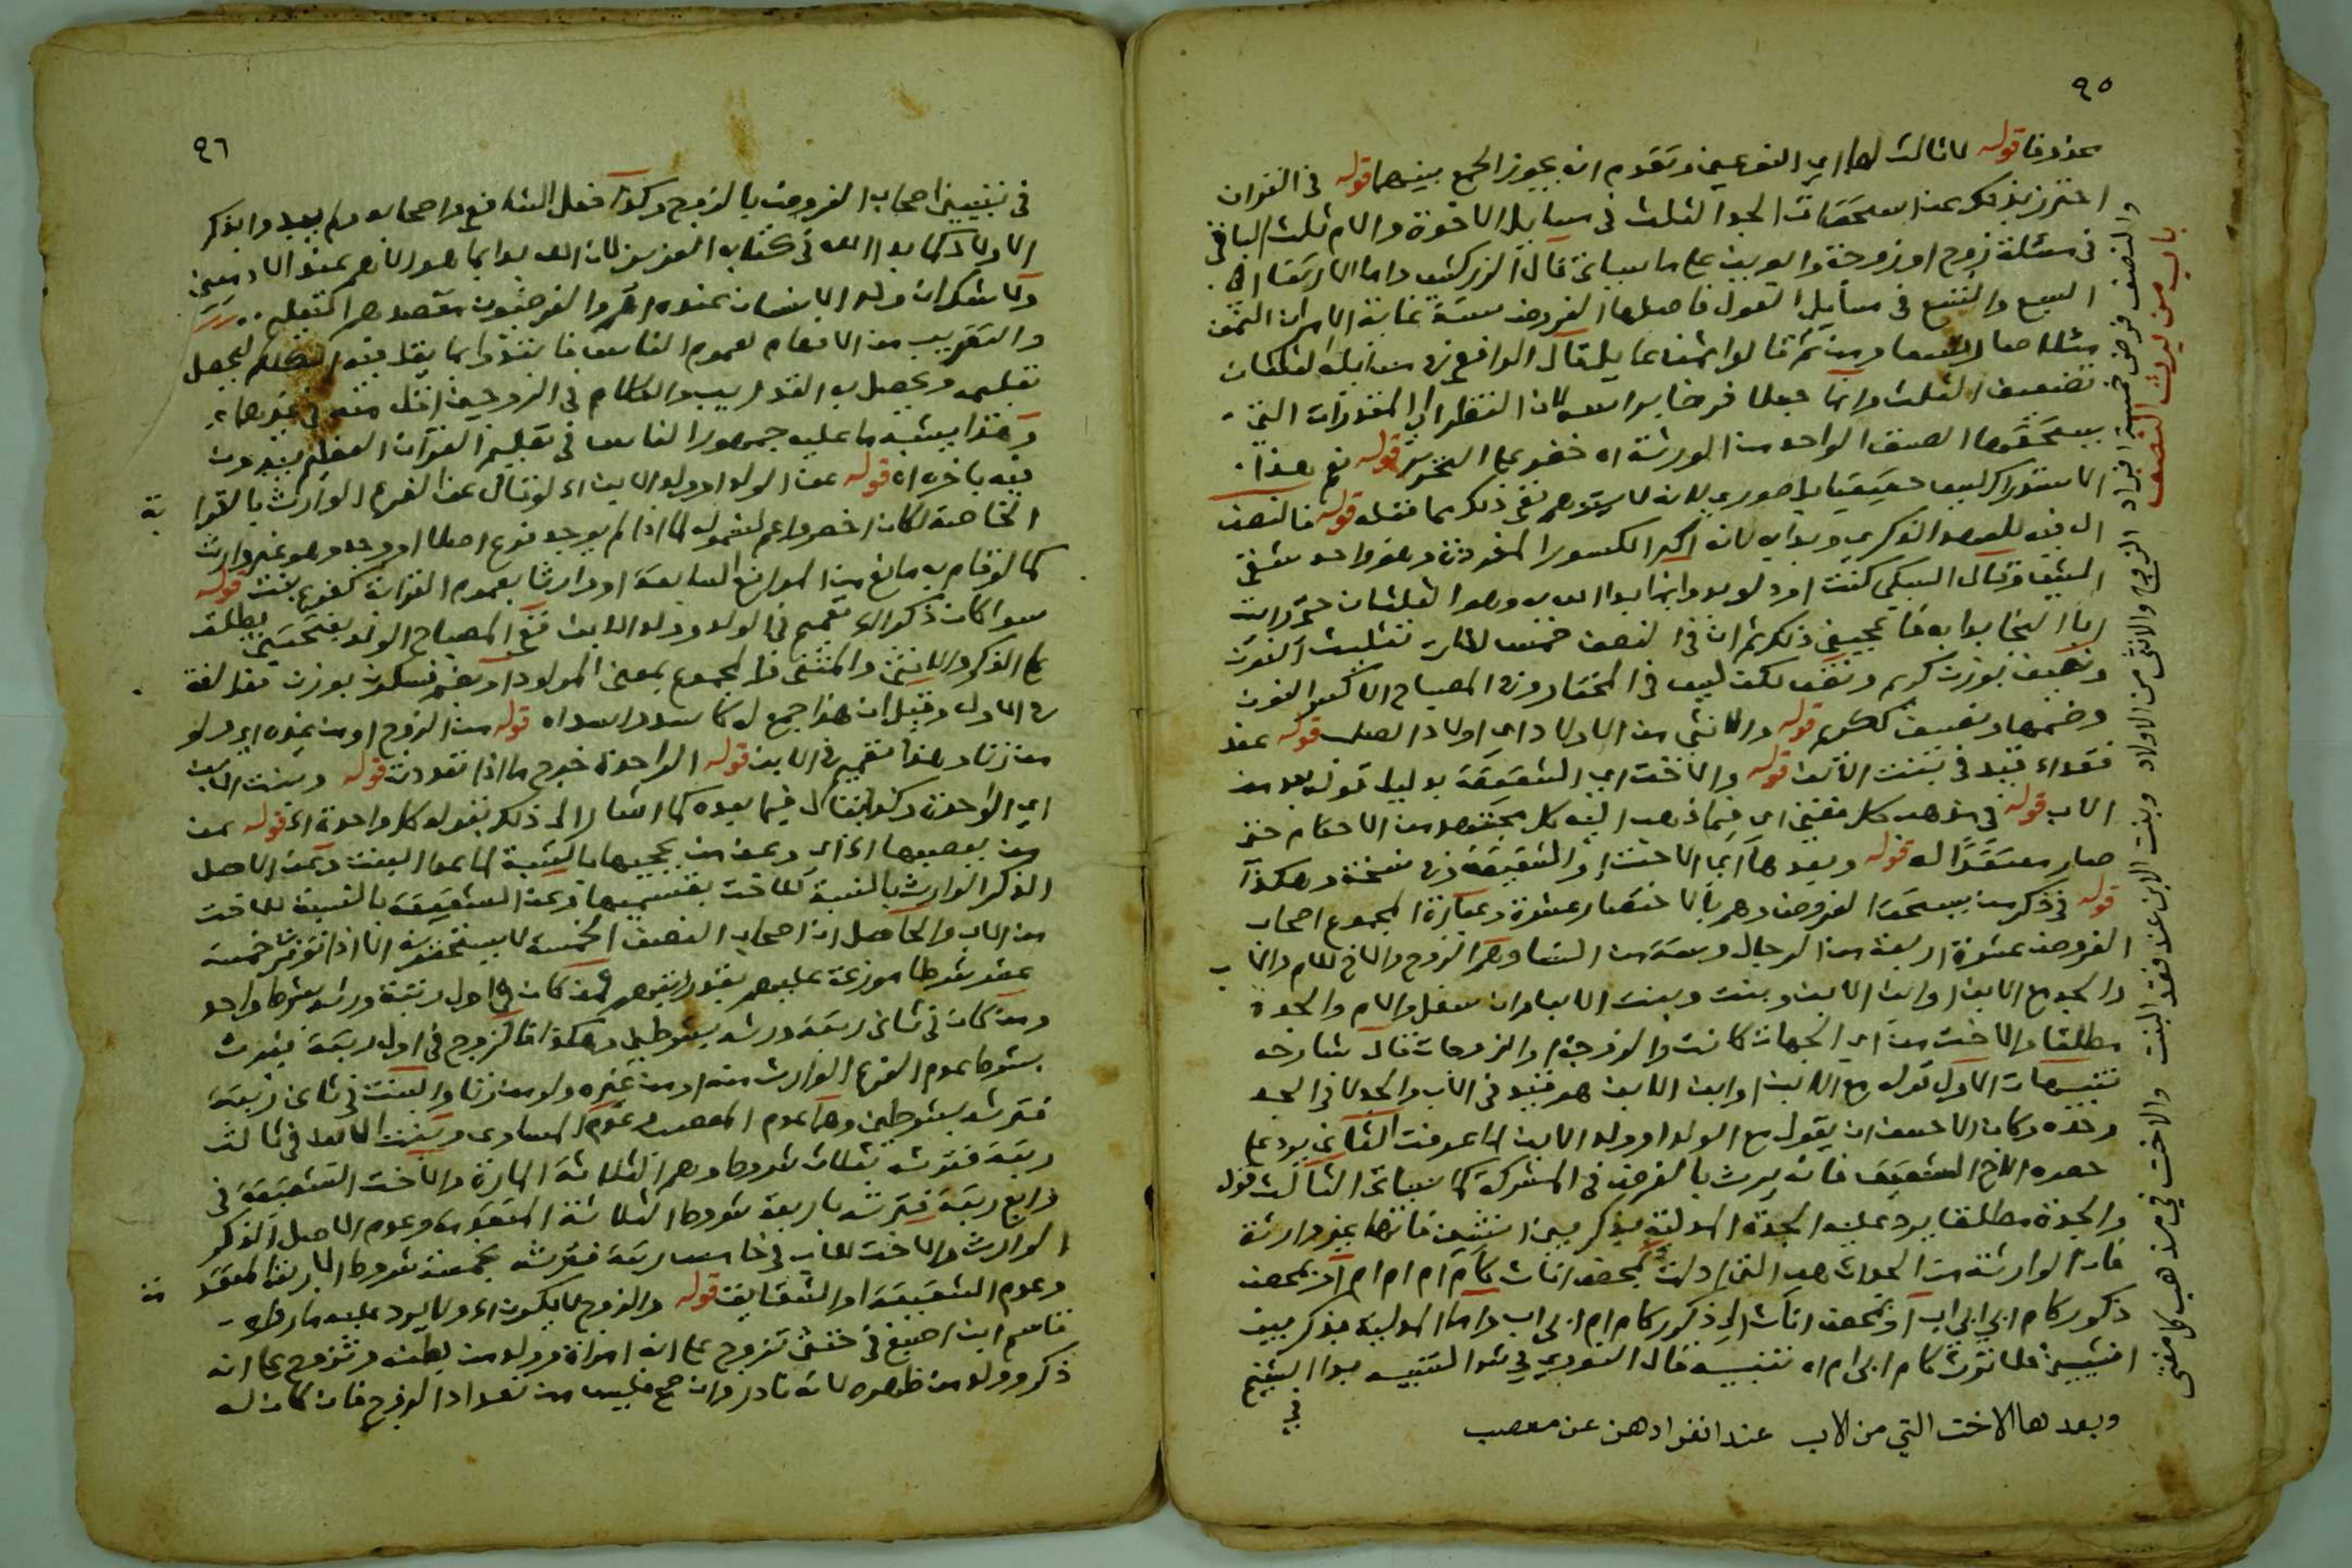 ٩٥
قوله لا ثالث لها اي النوعين وتقدم انه يجوز الجمع بينهما قوله في القران
احترز بذلك عن استحقاق الجد الثلث في مسايل الاخوة والام ثلث الباقي
في مسئلة زوج او زوجة وابوين على ما سياتي قال الزركشي واما الارتقا الى
السبع والتسع في مسايل العول فاصلها الفروض ستة غاية الامر ان الثمن
مثلا صار تسعا ومن ثم قالوا ثمنا عايلا قال الرافعي
تضعيف الثلث وانما جعلا فرضا براسه لان النظر الى المقدرات التي
يستحقها الصنف الواحد من الورثة اه قوله نعم هذا
الاستدراك ليس حقيقيا بل صوري لانه لا يتوهم نفي ذلك مما نقله قوله فالنصف
ال فيه للعهد الذكري وبدا به لانه اكبر الكسور المفردة
السبكي كنت اود لو بدوا بما بدا الله به وهو الثلثان حتى رايت
ابا النجا بدا به فاعجبني ذلك ثم ان في النصف خمس لغات تثليث النون
ونصيف بوزن كريم ونصف لكن ليس في المختار وفي المصباح الا كسر النون
وضمها ونصيف ككريم قوله والانثى من الاولاد اي اولاد الصلب قوله عند
فقد قيد في بنت الابن قوله والاخت اي الشقيقة بدليل قوله بعد من
الاب قوله في مذهب كل مفتي اي فيما ذهب اليه كل مجتهد من الاحكام حتى
صار معتقدا له قوله وبعدها اي الاخت الشقيقة وفي نسخة وهكذا
قوله في ذكر من يستحق الفروض وهم بالاختصار عشرة وعبارة المجموع اصحاب
الفروض عشرة اربعة من الرجال وستة من النسا وهم الزوج والاخ للام والاب
والجد مع الابن او ابن الابن وبنت وبنت الابن وان سفل والام والجدة
مطلقا والاخت من اي الجهات كانت والزوجة او الزوجات قال شارحه
تنبيهات الاول قوله مع الابن او ابن الابن هو قيد في الاب والجد لا في الجد
وحده وكان الاحسن ان يقول مع الولد او ولد الابن لما عرفت الثاني يرد على
حصره الاخ الشقيق فانه يرث بالفرض في المشركة كما سياتي الثالث قوله
والجدة مطلقا يرد عليه الجدة المدلية بذكر بين انثيين فانها غير وارثة
فان الوارثة من الجدات هي التي ادلت بمحض اناث كام ام ام ام او بمحض
ذكور كام ابي ابي اب او بمحض اناث الى ذكور كام ام ابي اب واما المدلية بذكر بين
انثيين فلا ترث كام ابي ام اه تنبيه قال النووي في شرح التنبيه بدا الشيخ
في
وبعدها الاخت التي من الاب عند انفرادهن عن معصب
باب من يرث النصف
والنصف فرض خمسة افراد الزوج والانثى من الاولاد وبنت الابن عند فقد البنت والاخت في مذهب كل مفتي
٩٦
في تبيين اصحاب الفروض بالزوج وكذا فعل الشافعي واصحابه ولم يبدوا بذكر
الاولاد كما بدا الله في كتابه العزيز لان الله بدا بما هو الاهم عند الادميين
ولا شك ان ولد الانسان عنده اهم والفرضيون مقصودهم التعليم
والتقريب من الافهام لعموم الناس فابتدوا بما يقل فيه الكلام ليحصل
تعليمه ويحصل به التدريب والكلام في الزوجين اقل منه في غيرهما
وهذا يشبه ما عليه جمهور الناس في تعليم القران العظيم يبدون
فيه باخره اه قوله عن الولد او ولد الابن اه لو قال عن الفرع الوارث بالقرابة
الخاصة لكان اخصر واعم لشموله لما اذا لم يوجد فرع اصلا او وجد وهو غير وارث
كما لو قام به مانع من الموانع السابقة او وارثا بعموم القرابة كفرع بنت قوله
سوا كان ذكرا اه تعميم في الولد وولد الابن ففي المصباح الولد بفتحتين يطلق
على الذكر والانثى والمثنى والمجموع بمعنى المولود او بضم فسكون بوزن قفل لغة
في الاول وقيل ان هذا جمع له كاسد واسد اه قوله من الزوج او من غيره اي ولو
من زنا وهذا تعميم في الابن قوله الواحدة خرج ما اذا تعددت قوله وبنت الابن
اي الواحدة وكذا يقال فيما بعده كما اشار الى ذلك بقوله كل واحدة اه قوله عن
من يعصبها اه اي وعمن يحجبها بالنسبة لما عدا البنت وعن الاصل
الذكر الوارث بالنسبة للاخت بقسميها وعن الشقيقة بالنسبة للاخت
من الاب والحاصل ان اصحاب النصف الخمسة لا يستحقونه الا اذا توفرت خمسة
عشر شرطا موزعة عليهم بقدر رتبهم فمن كان في اول رتبة ورثه بشرط واحد
ومن كان في ثاني رتبة ورثه بشرطين وهكذا فالزوج في اول رتبة فيرث
بشرط عدم الفرع الوارث منه او من غيره ولو من زنا والبنت في ثاني رتبة
فترثه بشرطين وهما عدم المعصب وعدم المساوي وبنت الابن في ثالث
رتبة فترثه بثلاث شروط وهم الثلاثة المارة والاخت الشقيقة في
رابع رتبة فترثه باربعة شروط الثلاثة المتقدمة وعدم الاصل الذكر
الوارث والاخت للاب في خامس رتبة فترثه بخمسة شروط الاربعة المتقدمة
وعدم الشقيقة او الشقايق قوله والزوج لا يكون اه ولا يرد عليه ما رواه
قاسم ابن اصبغ في خنثى تزوج على انه امراة وولد من بطنه وتزوج على انه
ذكر وولد من ظهره لانه نادر وان صح فليس من تعداد الزوج فان كان له